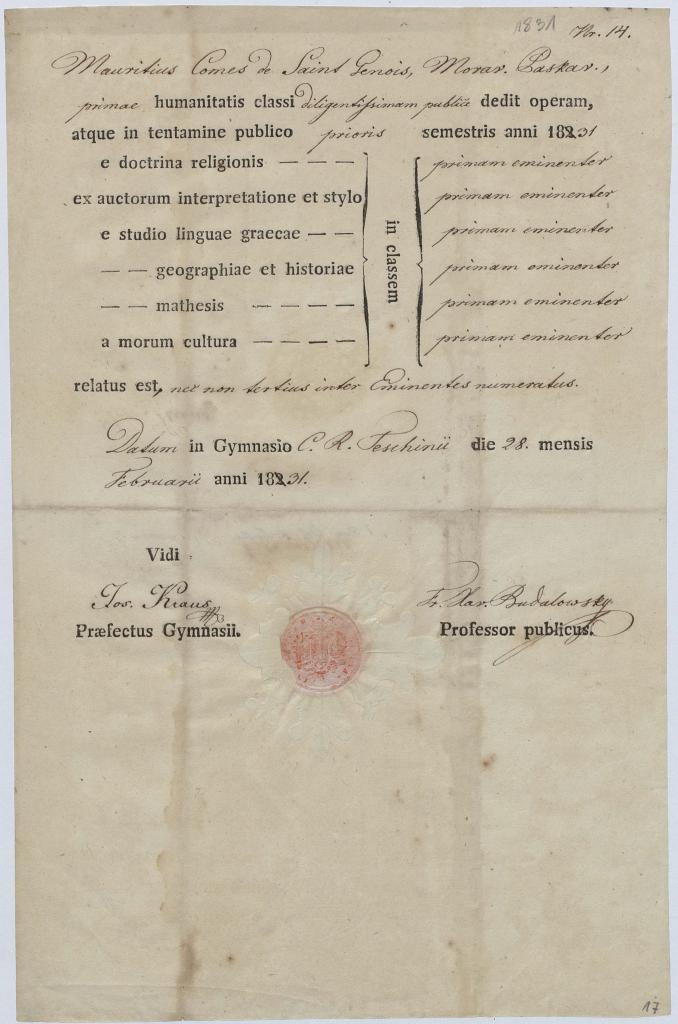 1831
Nr. 14.
Mauritius Comes de Saint Genois, Morav. Paskov.,
primae humanitatis classi diligentissimam publice dedit operam,
atque in tentamine publico prioris semestris anni 1831
e doctrina religionis — — — primam eminenter
ex auctorum interpretatione et stylo primam eminenter
e studio linguae graecae — — primam eminenter
— — geographiae et historiae primam eminenter
— — mathesis — — — — primam eminenter
a morum cultura — — — — primam eminenter
in classem
relatus est, nec non tertius inter Eminentes numeratus.
Datum in Gymnasio C. R. Teschinii die 28. mensis
Februarii anni 1831.
Vidi
Jos. Kraus Fr. Xav. Budalowsky
Præfectus Gymnasii. Professor publicus.
17